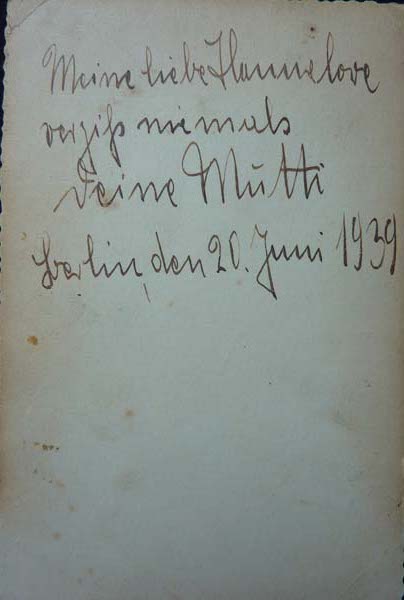 Meine liebe Hannelore
vergiß niemals
deine Mutti
Berlin, den 20. Juni 1939